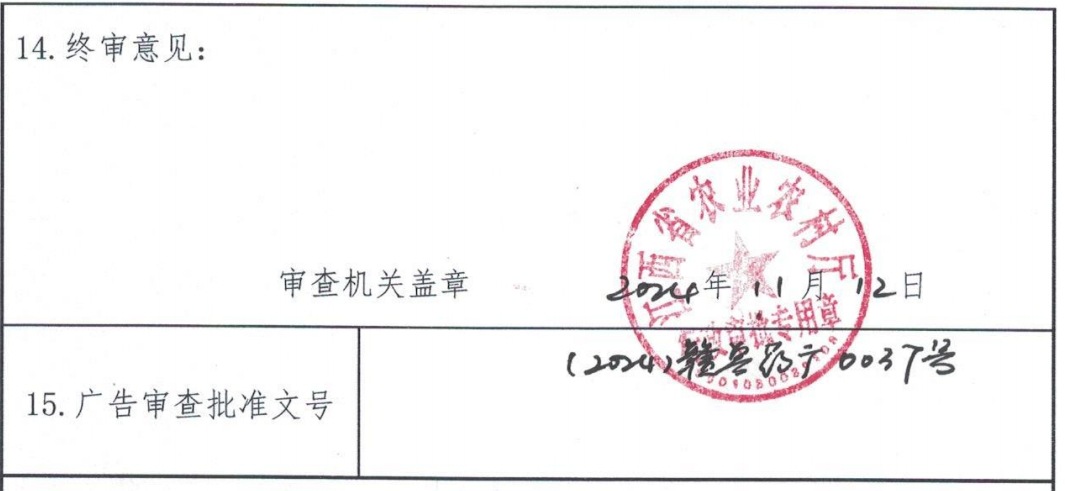 14.终审意见:
江西省农业农村厅
审查机关盖章
2024年11月12日
行政审批专用章
15.广告审查批准文号
(2024)赣兽药广0037号